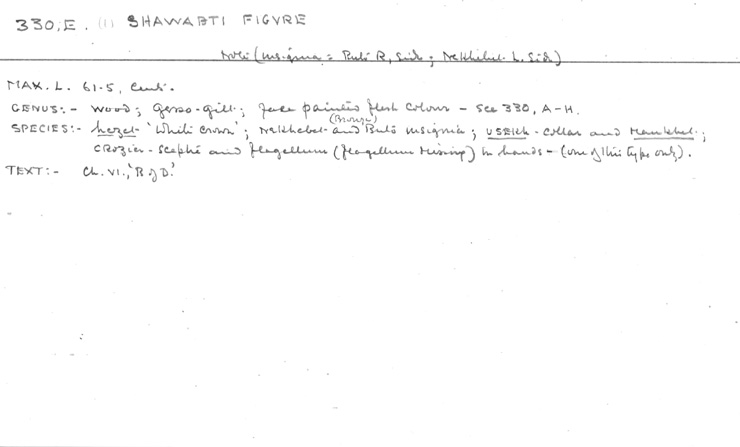 330, E. (1) SHAWABTI FIGURE
Note (insignia = Buto R. Side; Nekhebet L. Side)
MAX. L. 61.5, Cent.
GENUS:- Wood; Gesso-gilt; face painted flesh colour - see 330, A-H.
(Bronze)
SPECIES:- hezet-'White Crown'; Nekhebet- and Buto insignia; USEKH-collar and Mankhet;
Crozier-Sceptre and flagellum (flagellum Missing) in hands - (one of this type only).
TEXT:- Ch. VI., 'B of D.'